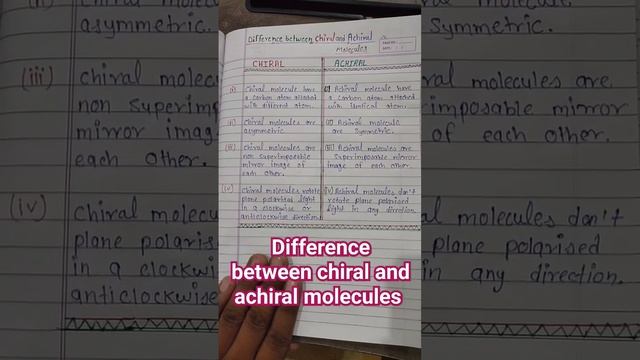 Difference between Chiral and Achiral
Molecules
CHIRAL
ACHIRAL
(i) Chiral molecule have
a Carbon atom attached
with different atom.
(i) Achiral molecule have
a Carbon atom attached
with
(ii) Chiral molecules are
asymmetric
(ii) Achiral molecule
are Symmetric.
(iii) Chiral molecules are
non Superimposable
mirror image of
each other.
(iii) Achiral molecules are
Superimposable mirror
image of each other.
(iv) Chiral molecules rotate
plane polarised light
in a clockwise or
anticlockwise direction
(iv) Achiral molecules don't
rotate plane polarised
light in any direction.
Difference
between chiral and
achiral molecules
asymmetric.
(iii) Chiral molecu
non Superim
mirror imag
each other.
(iv) Chiral mole
plane polaris
in a clockwise
anticlockwise
Symmetric.
l molecules are
mposable mirror
of each other.
l molecules don't
plane polarised
in any direction.